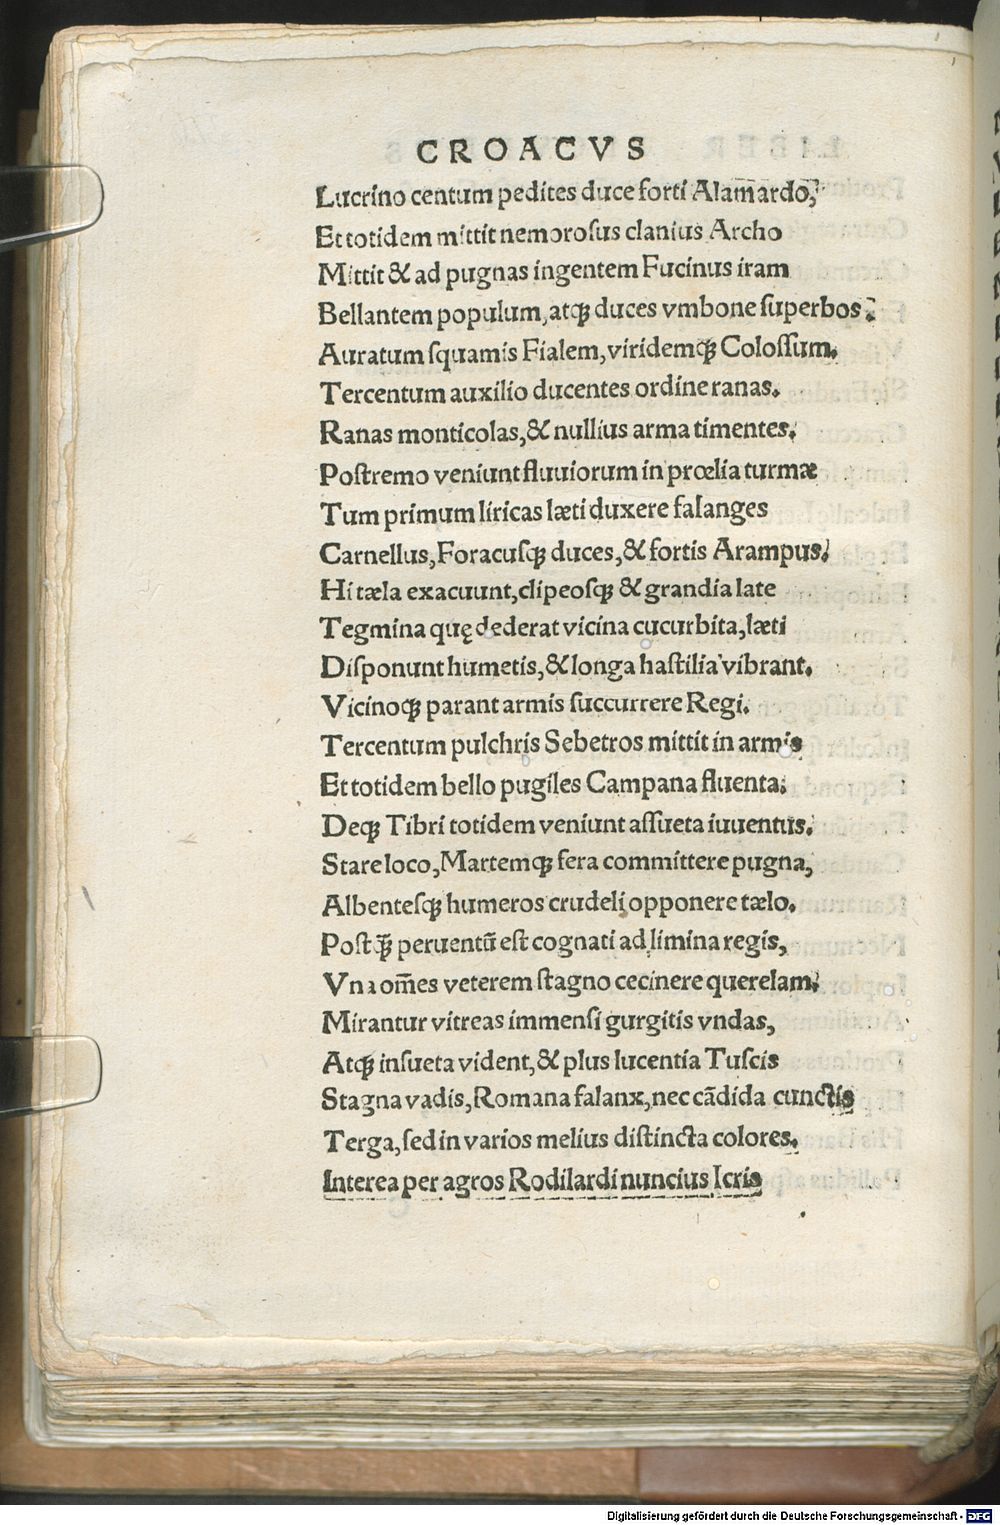 CROACVS
Lucrino centum pedites duce forti Alamardo,
Et totidem mittit nemorosus clanius Archo
Mittit & ad pugnas ingentem Fucinus iram
Bellantem populum, atqꝫ duces vmbone superbos.
Auratum squamis Fialem, viridemqꝫ Colossum.
Tercentum auxilio ducentes ordine ranas.
Ranas monticolas, & nullius arma timentes.
Postremo veniunt fluuiorum in prœlia turmæ
Tum primum liricas læti duxere falanges
Carnellus, Foracusqꝫ duces, & fortis Arampus.
Hi tæla exacuunt, clipeosqꝫ & grandia late
Tegmina quę dederat vicina cucurbita, læti
Disponunt humetis, & longa hastilia vibrant.
Vicinoqꝫ parant armis succurrere Regi.
Tercentum pulchris Sebetros mittit in armis
Et totidem bello pugiles Campana fluenta.
Deqꝫ Tibri totidem veniunt assueta iuuentus.
Stare loco, Martemqꝫ fera committere pugna,
Albentesqꝫ humeros crudeli opponere tælo.
Post qꝫ̃ peruentũ est cognati ad limina regis,
Vna om̃es veterem stagno cecinere querelam.
Mirantur vitreas immensi gurgitis vndas,
Atqꝫ insueta vident, & plus lucentia Tuscis
Stagna vadis, Romana falanx, nec cãdida cunctis
Terga, sed in varios melius distincta colores.
Interea per agros Rodilardi nuncius Icris
Digitalisierung gefördert durch die Deutsche Forschungsgemeinschaft - DFG